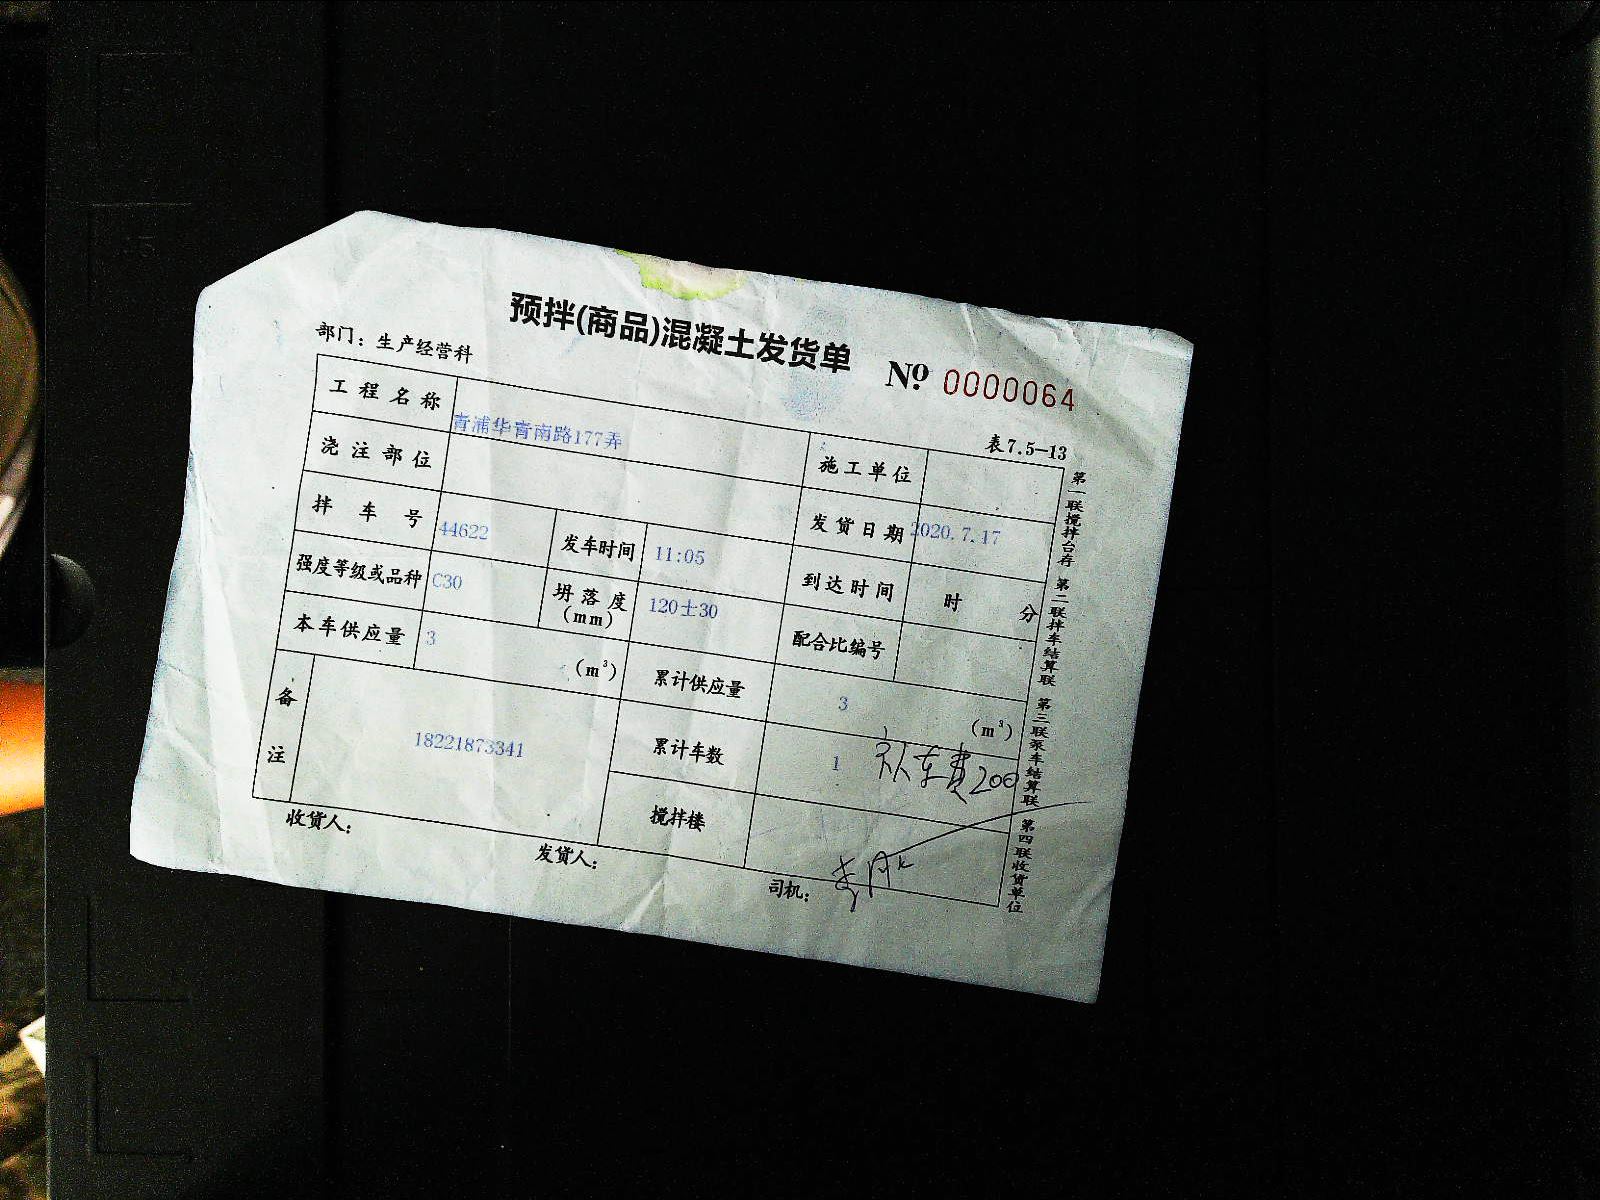 预拌(商品)混凝土发货单
部门：生产经营科
№ 0000064
表7.5-13
工程名称 青浦华青南路177弄 施工单位
浇注部位 发货日期 2020.7.17
拌车号 44622 发车时间 11:05 到达时间 时 分
强度等级或品种 C30 坍落度(mm) 120士30 配合比编号
本车供应量 3 (m³) 累计供应量 3 (m³)
备注 18221873341 累计车数 1 车费200
搅拌楼
收货人： 发货人： 司机：
第一联搅拌台存 第二联拌车结算联 第三联泵车结算联 第四联收货单位